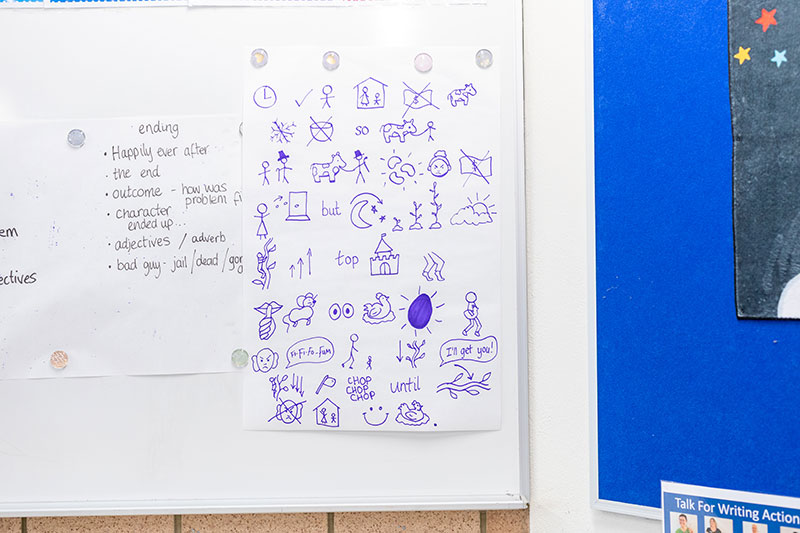 ending
• Happily ever after
• the end
• outcome - how was
problem fi
• character
ended up...
• adjectives / adverb
• bad guy - jail/dead/gon
em
ectives
so
but
top
Fi-Fi-fo-fum
I'll get you!
CHOP
CHOP
CHOP
until
Talk For Writing Action